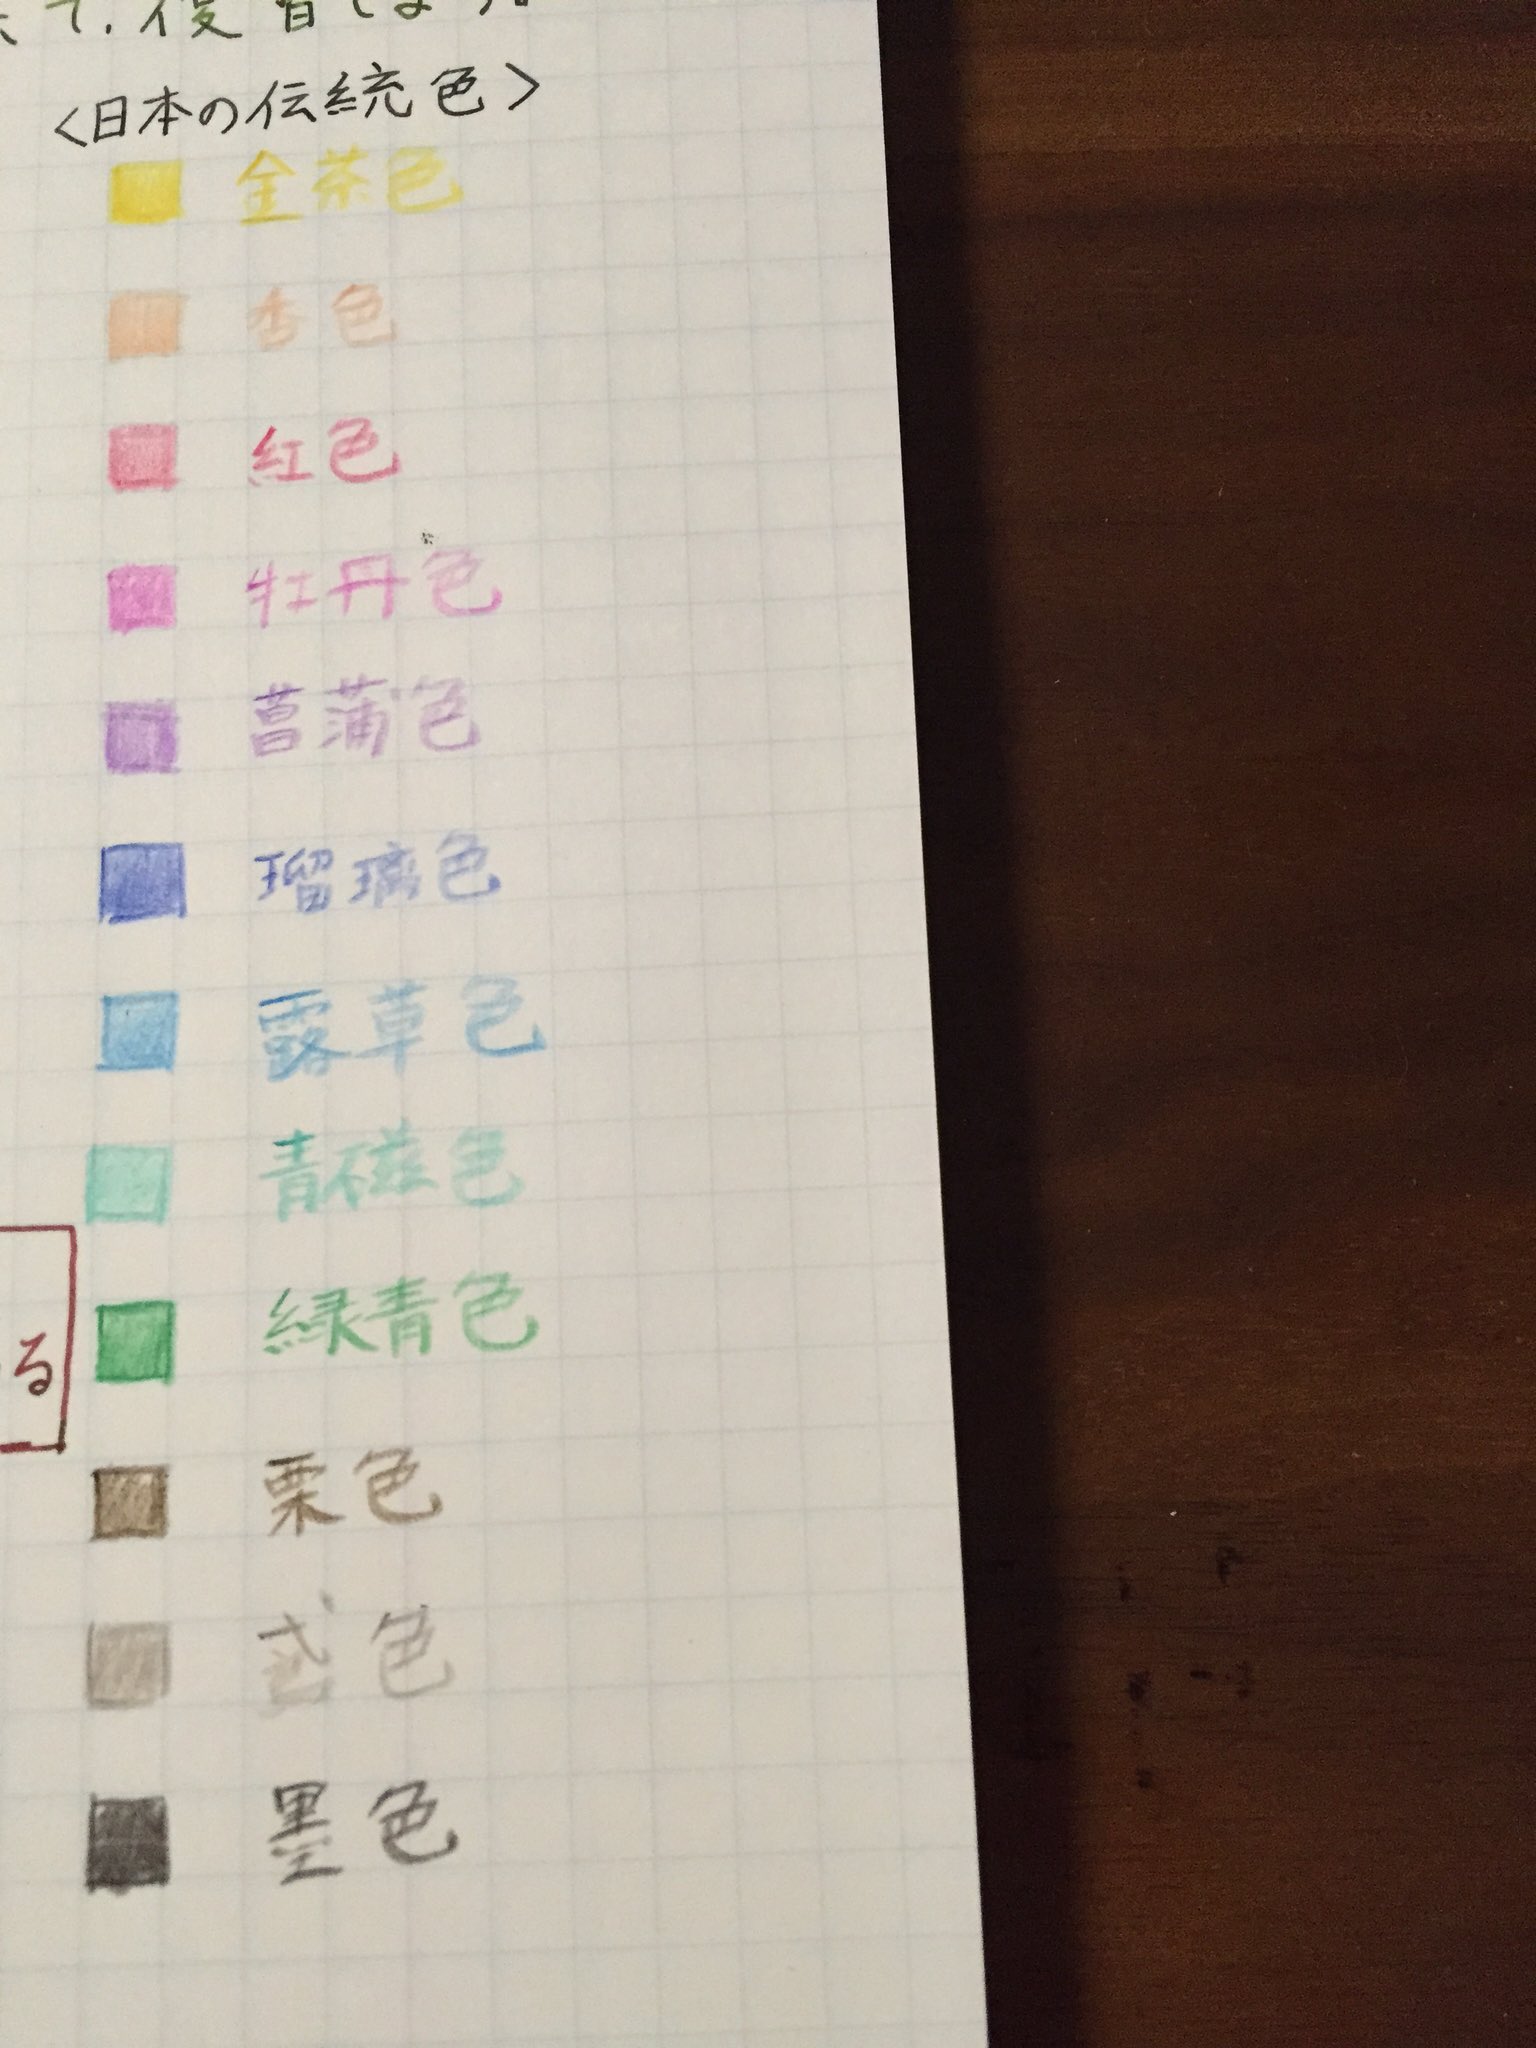 て、復習します。
<日本の伝統色>
金茶色
杏色
紅色
牡丹色
菖蒲色
瑠璃色
露草色
青磁色
緑青色
栗色
色
墨色
る